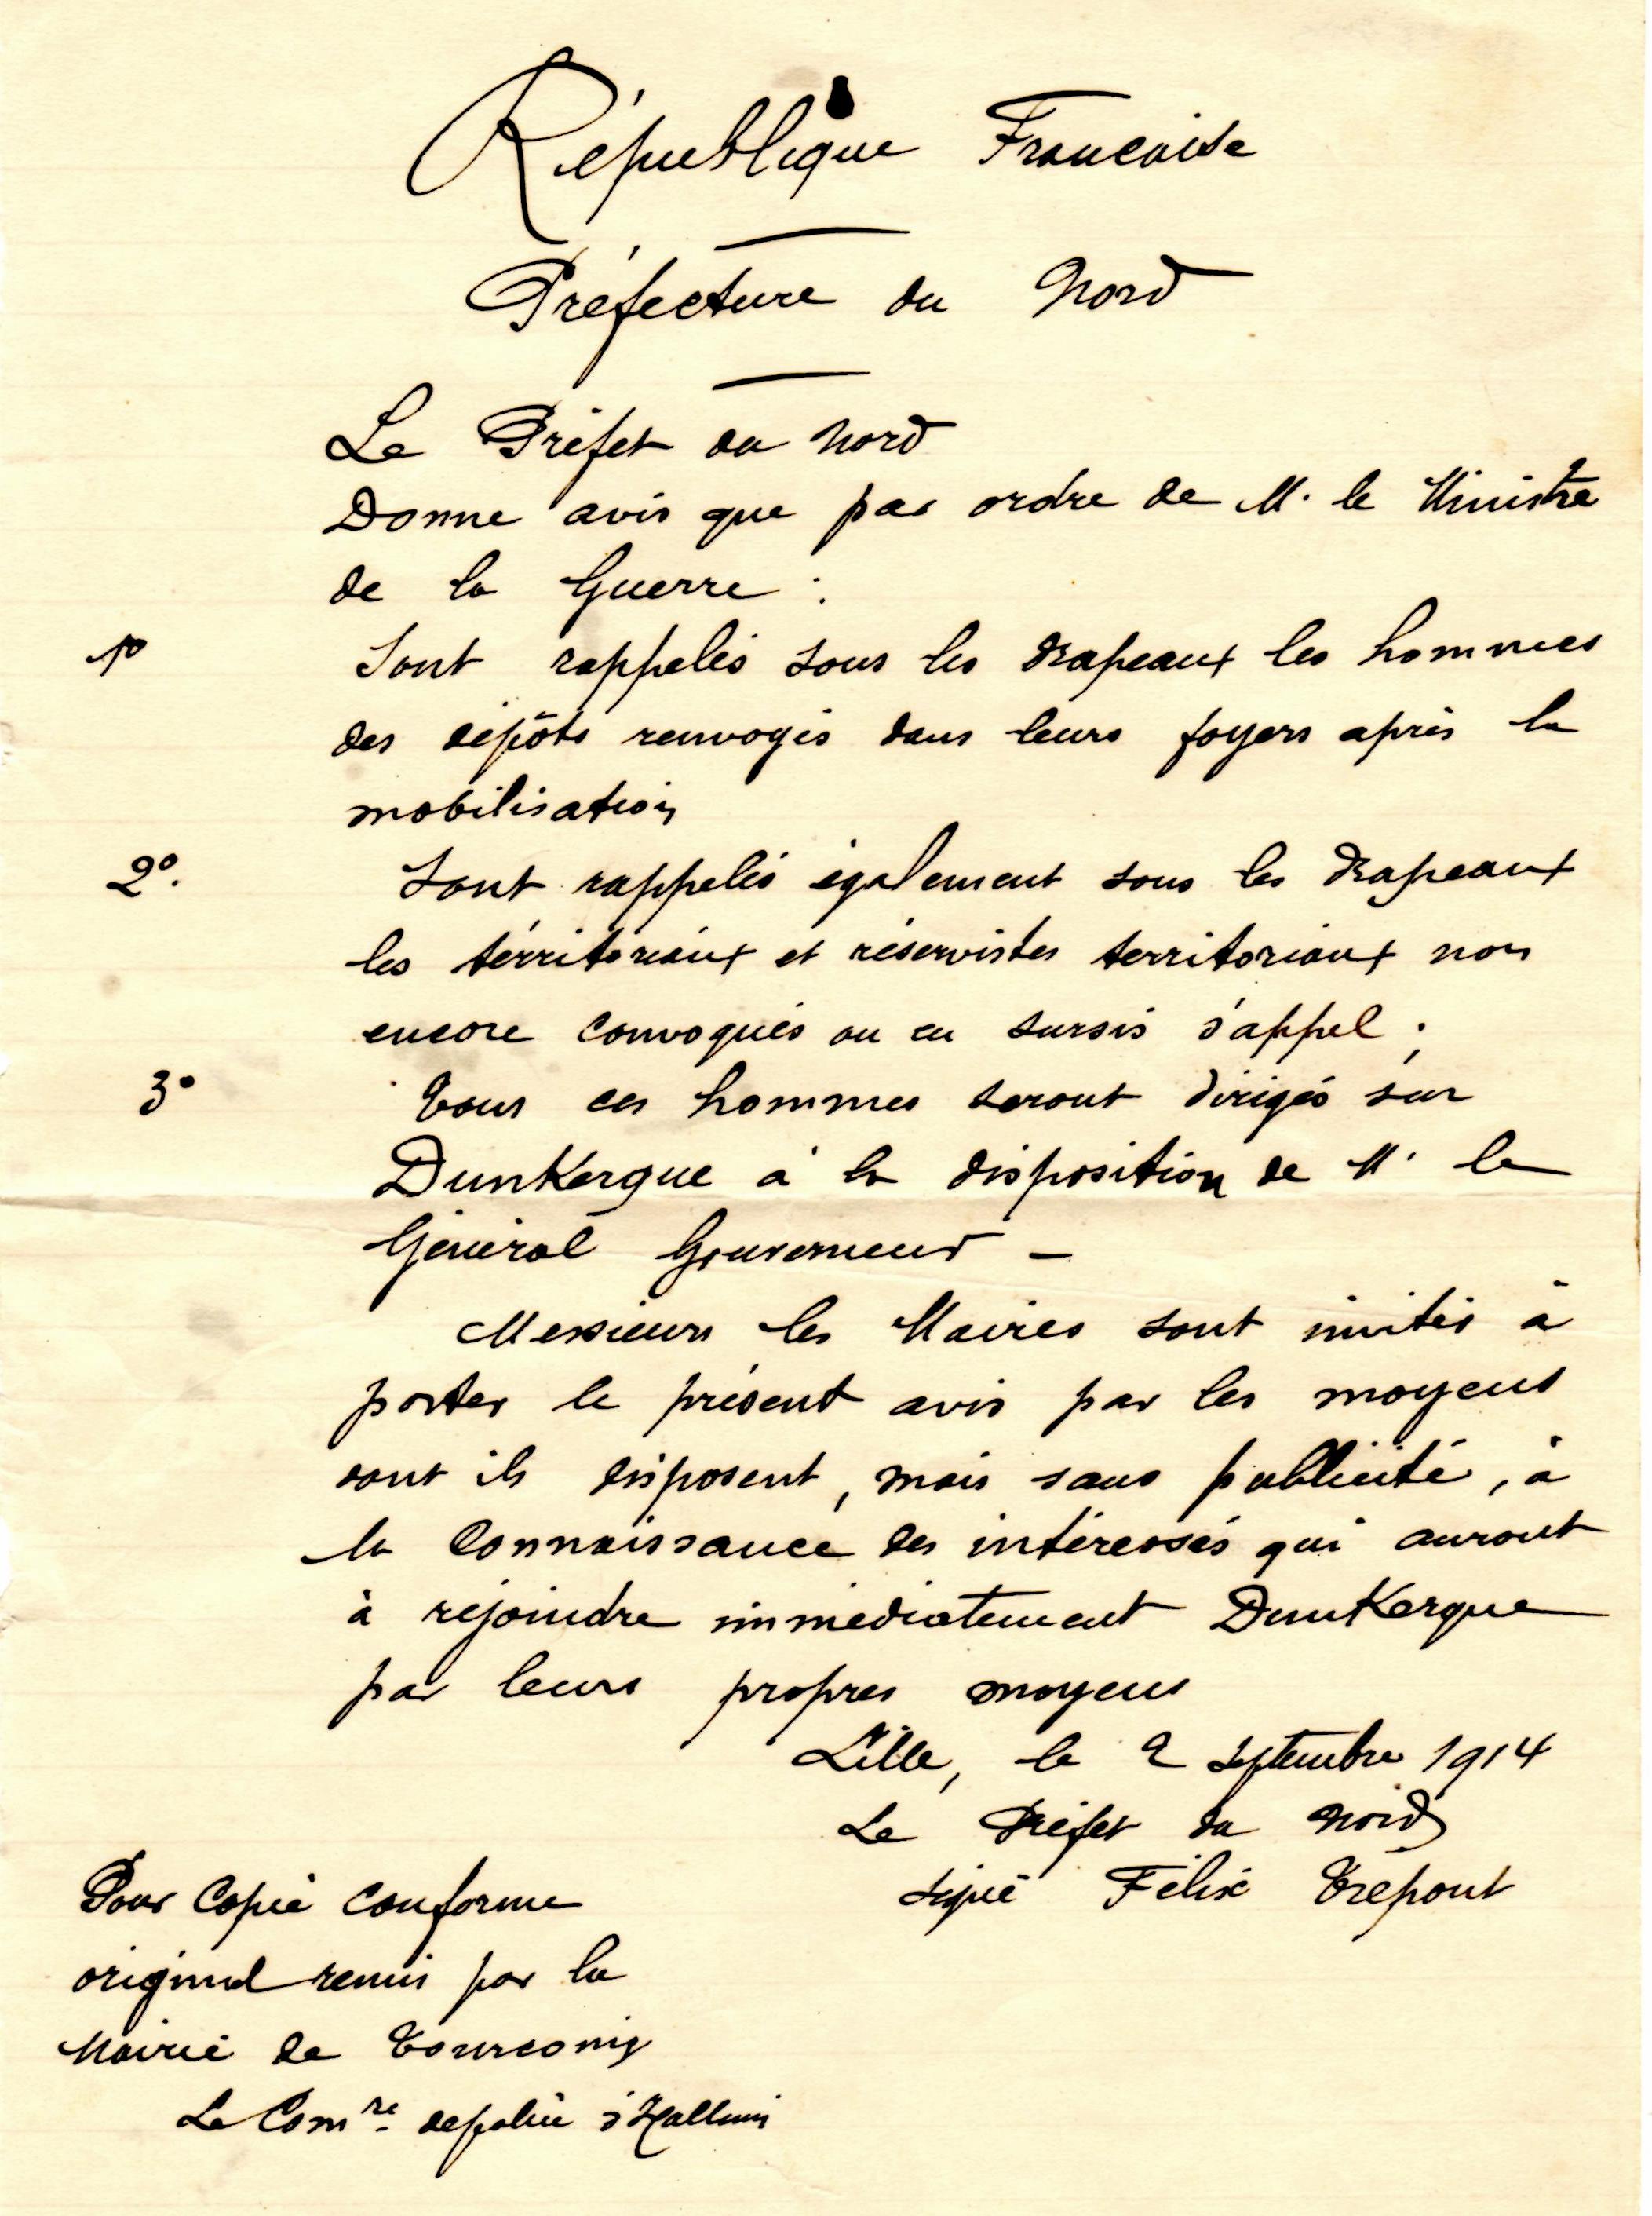 République Francaise
Préfecture du Nord
Le Préfet du Nord
Donne avis que par ordre de M. le Ministre
de la Guerre :
1º Sont rappelés sous les drapeaux les hommes
des dépôts renvoyés dans leurs foyers après la
mobilisation
2º. Sont rappelés également sous les drapeaux
les térritoriaux et réservistes territoriaux non
encore convoqués ou en sursis d'appel ;
3º Tous ces hommes seront dirigés sur
DunKerque à la disposition de M. le
Général Gouverneur -
Messieurs les Maires sont invités à
porter le présent avis par les moyens
dont ils disposent, mais sans publicité, à
la Connaissance des intéressés qui auront
à rejoindre immédiatement DunKerque
par leurs propres moyens
Lille, le 2 Septembre 1914
Le Préfet du Nord
signé Félix Trépont
Pour Copie conforme
original remis par la
Mairie de Tourcoing
Le Comre de police d'Halluin